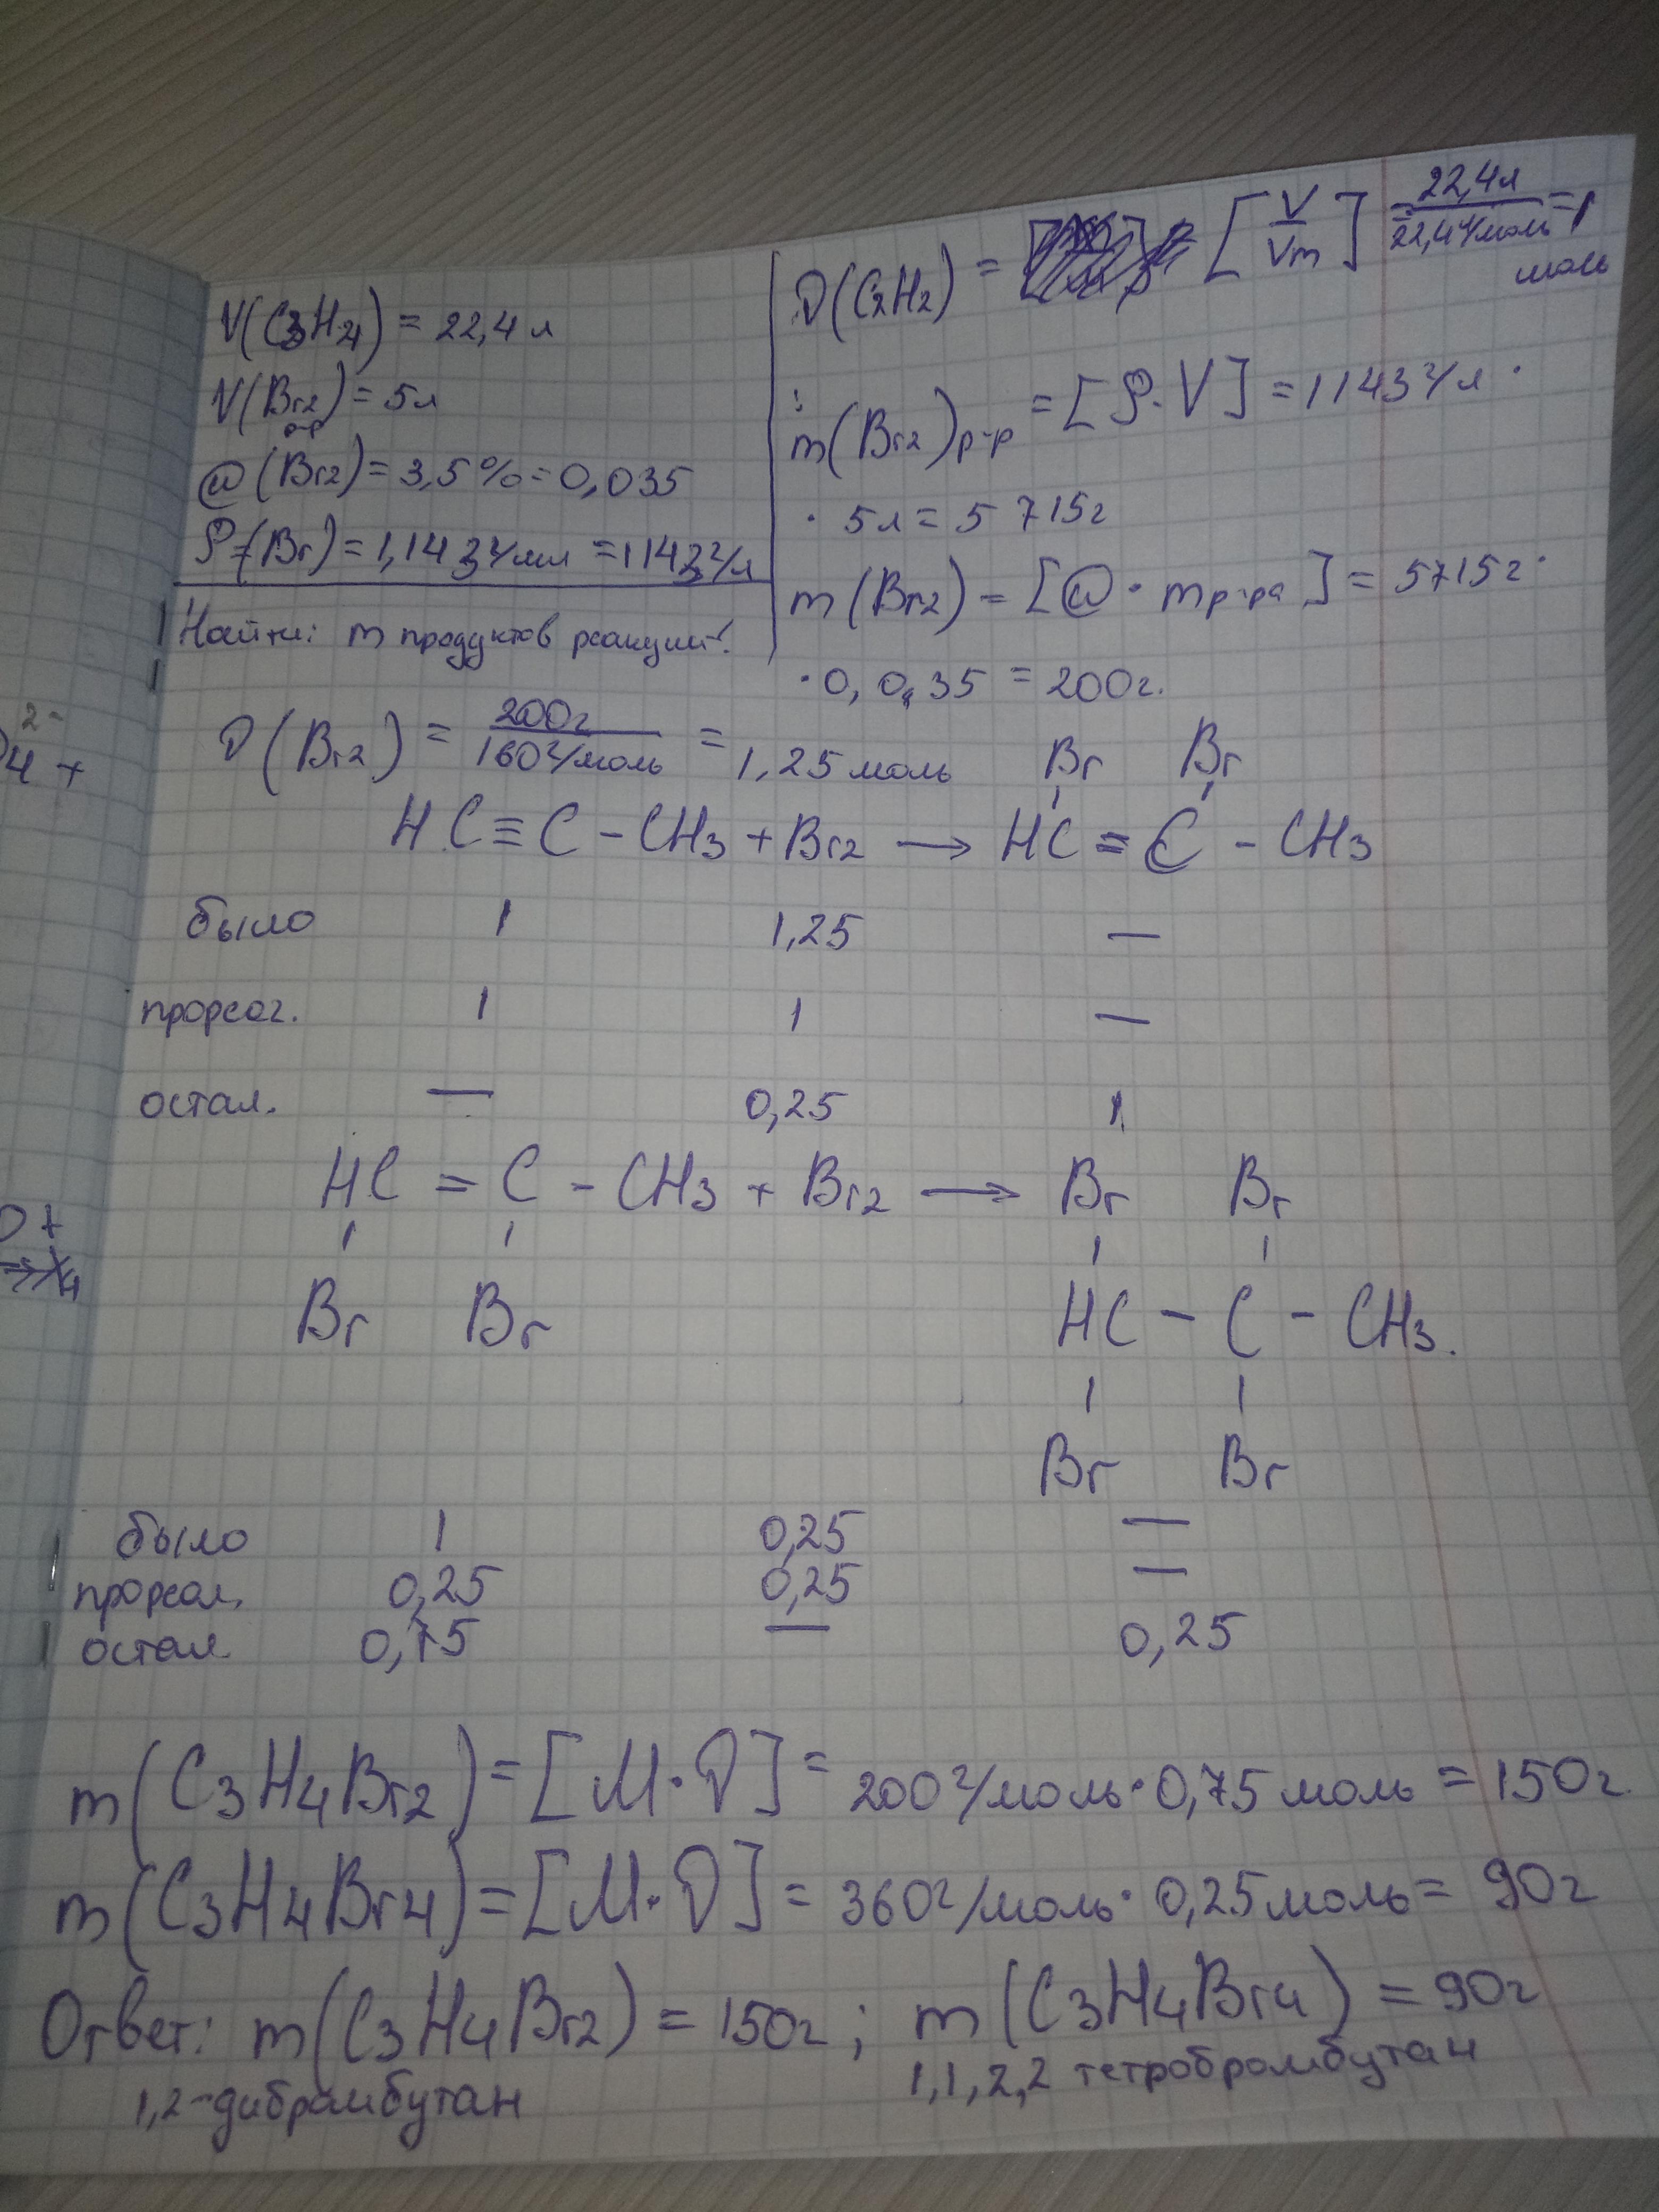 V(C3H4) = 22,4 л
V(Br2)р-р = 5л
ω(Br2) = 3,5% = 0,035
ρ=(Br) = 1,143 г/мл = 1143 г/л
Найти: m продуктов реакции-!
ν(C2H2) = [V/Vm] = 22,4л/22,4 л/моль = 1 моль
m(Br2)р-р = [ρ·V] = 1143 г/л ·
· 5л = 5 715г
m(Br2) = [ω · mр-ра] = 5715г ·
· 0,035 = 200г.
2-
4 +
ν(Br2) = 200г/160 г/моль = 1,25 моль
Br Br
HC≡C - CH3 + Br2 → HC = C - CH3
было 1 1,25 —
прореаг. 1 1 —
остал. — 0,25 1
HC = C - CH3 + Br2 → Br Br
Br Br HC - C - CH3.
Br Br
было 1 0,25 —
прореал. 0,25 0,25 —
остал. 0,75 — 0,25
m(C3H4Br2) = [M·ν] = 200 г/моль · 0,75 моль = 150г.
m(C3H4Br4) = [M·ν] = 360г/моль · 0,25моль = 90г
Ответ: m(C3H4Br2) = 150г; m(C3H4Br4) = 90г
1,2-дибромбутан 1,1,2,2 тетробромбутан